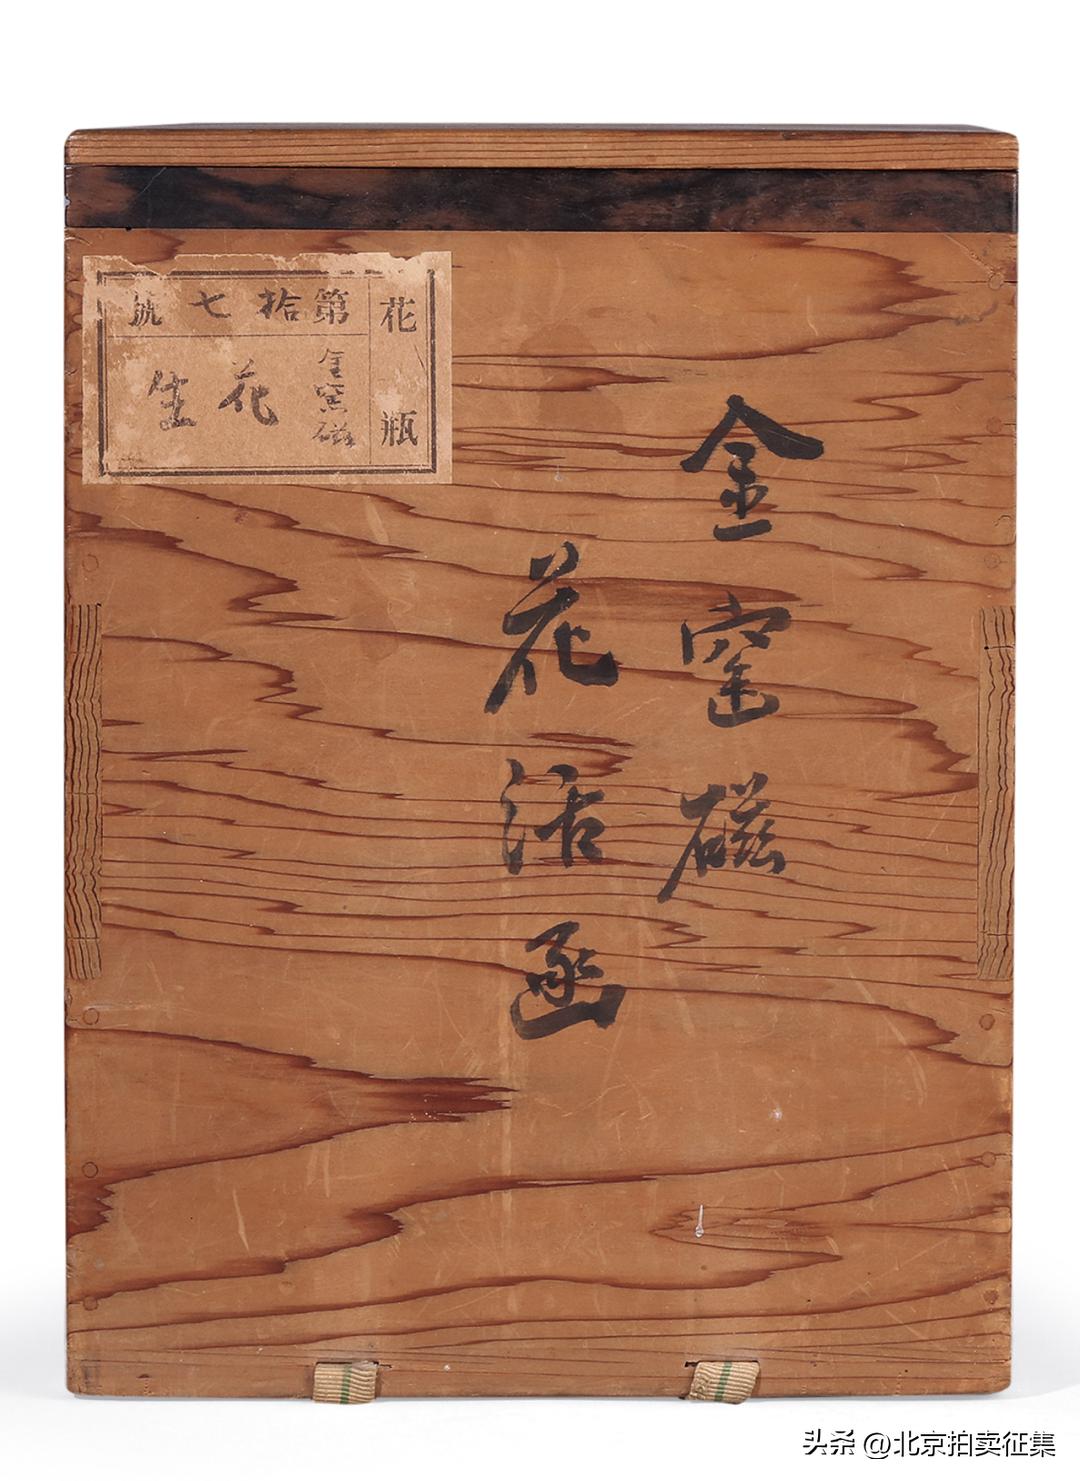 花瓶
第拾七號
金窯磁
花生
金窑磁
花活凾
头条 @北京拍卖征集